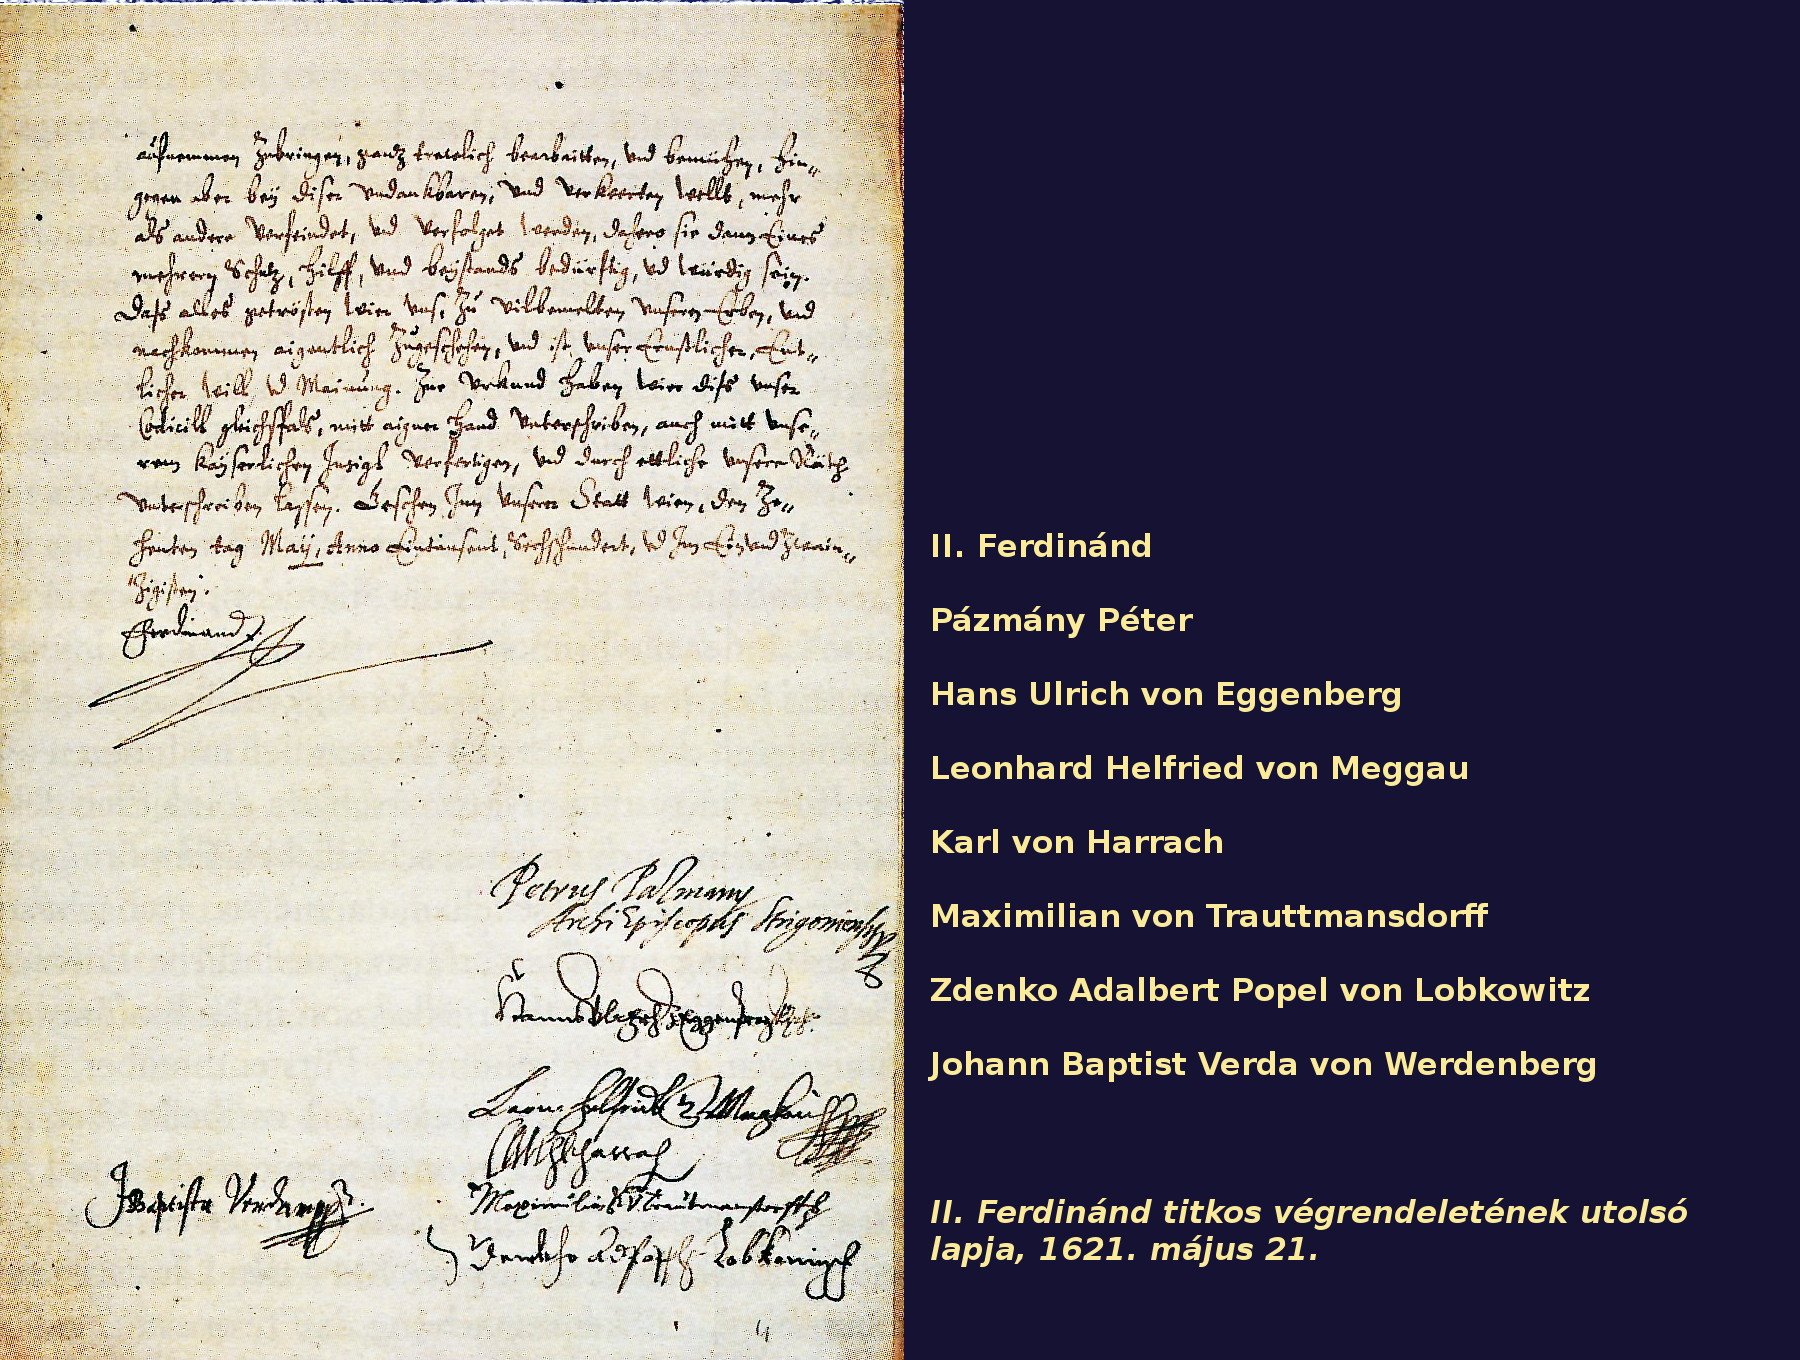 aufnemmen Zubringen, gantz trewlich bearbaitten, vnd bemühen, hin„
gegen aber bey diser vndankbaren, vnd verkeerten wellt, mehr
als andere verfeindet, vnd verfolget werden, dahero sie dann Eines
mehrern Schutz, hilff, vnd beystands bedürftig, vnd würdig sein.
Dass alles getrösten wier vns, zu vilbemelten vnsern Erben, vnd
nachkommen aigentlich Zugeschehen, vnd ist vnser Ernstlicher, Ent„
licher will, vnd Mainung. Zue Vrkund haben wier diss vnser
Codicill gleichsfals, mitt aigner hand vnterschriben, auch mitt vnse„
rem kayserlichen Insigl verfertigen, vnd durch ettliche vnsere Räth
vnterschreiben lassen. Geschen Inn vnserer Statt Wien, den Ze„
henten tag Maij, Anno Eintausent, Sechshundert, vnd Im Einvndzwain„
Zigisten.
Ferdinand
Petrus Pazmany
ArchiEpiscopus Strigoniensis
Hanns Vlrich Eggenberg
Leon: Helfrid v Meggau
Carl v Harrach
J Baptista Verda
Maximilian v Trautmanstorff
Lobkowitz
II. Ferdinánd
Pázmány Péter
Hans Ulrich von Eggenberg
Leonhard Helfried von Meggau
Karl von Harrach
Maximilian von Trauttmansdorff
Zdenko Adalbert Popel von Lobkowitz
Johann Baptist Verda von Werdenberg
II. Ferdinánd titkos végrendeletének utolsó
lapja, 1621. május 21.